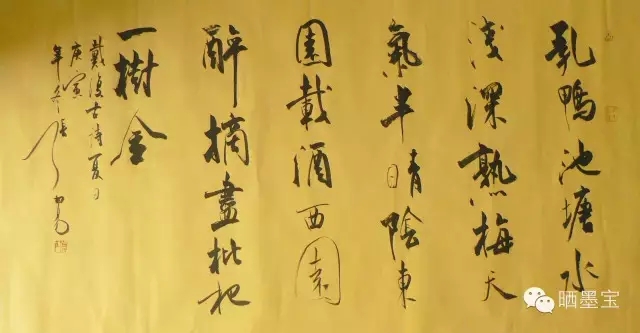 乳鴨池塘水
淺深熟梅天
氣半晴陰東
園載酒西園
醉摘盡枇杷
一樹金
戴復古詩夏日
庚寅
年冬張
晒墨宝